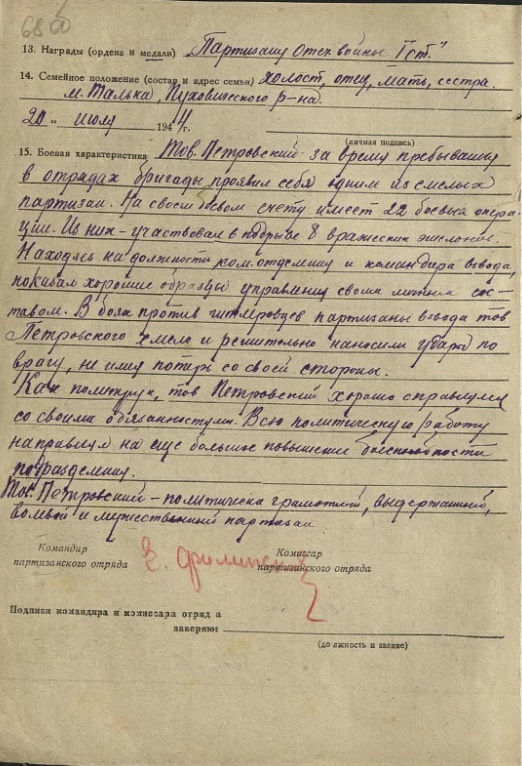 68 об
13. Награды (ордена и медали) „Партизану Отеч войны I ст."
14. Семейное положение (состав и адрес семьи) холост, отец, мать, сестра.
м. Талька, Пуховичского р-на.
20 " июля 1944 г.
(личная подпись)
15. Боевая характеристика Тов. Петровский за время пребывания
в отрядах бригады проявил себя одним из смелых
партизан. На своем боевом счету имеет 22 боевых опера-
ции. Из них - участвовал в подрыве 8 вражеских эшелонов.
Находясь на должности ком. отделения и командира взвода,
показал хорошие образцы управления своим личным сос-
тавом. В боях против гитлеровцев партизаны взвода тов
Петровского смело и решительно наносили удары по
врагу, не имея потерь со своей стороны.
Как политрук, тов Петровский хорошо справился
со своими обязанностями. Всю политическую работу
направлял на еще большее повышение боеспособности
подразделения.
Тов. Петровский - политически грамотный, выдержанный,
волевой и мужественный партизан
Командир Комиссар
партизанского отряда партизанского отряда
Подписи командира и комиссара отряда
заверяю
(должность и звание)